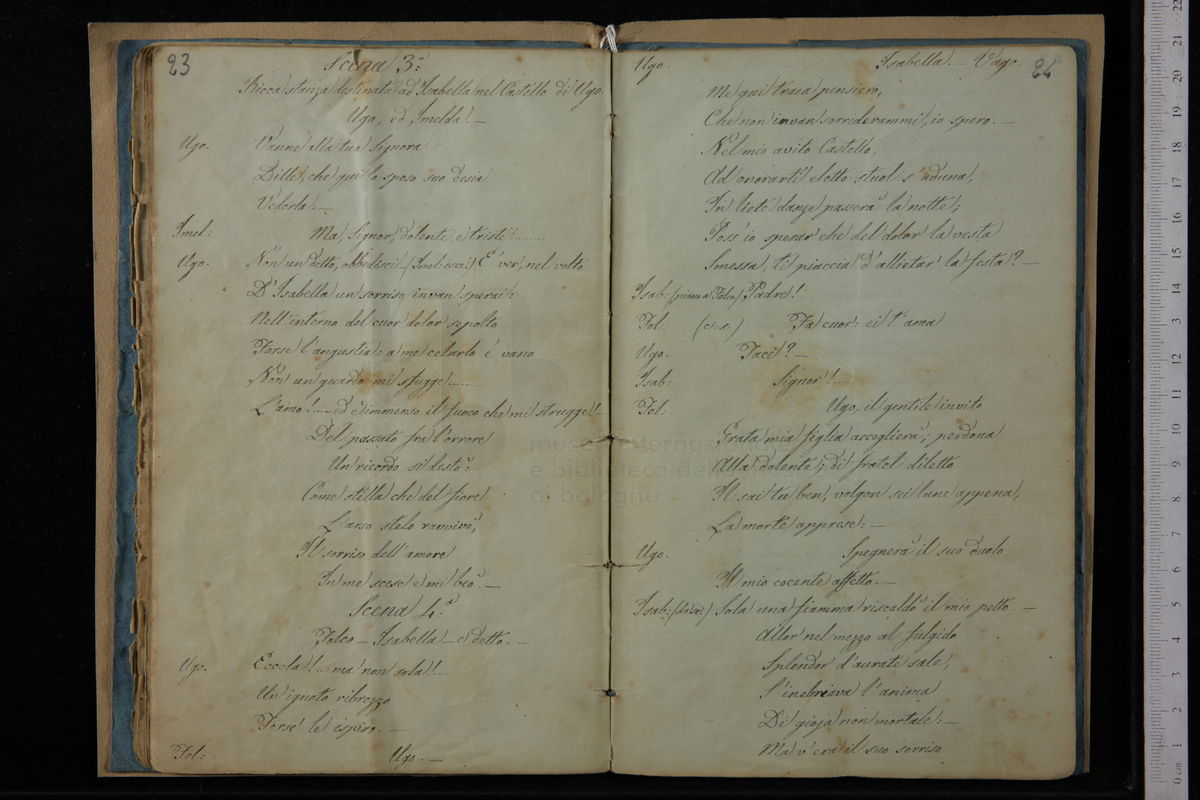 23
Scena 3ª
Ricca stanza destinata ad Isabella nel Castello di Ugo.
Ugo, ed Imelda. —
Ugo. Vanne alla tua Signora
Dille, che qui lo sposo suo desia
Vederla. —
Imel: Ma, Signor, dolente, e triste........
Ugo. Non un detto, obbedisci — (Imel. esce.) E' ver, nel volto
D'Isabella un sorriso invan sperai:
Nell'interno del cuor dolor sepolto
Forse l'angustia: a me celarlo é vano
Non un guardo mi sfugge.......
L'amo!.... ed é immenso il fuoco che mi strugge! —
Del passato fra l'orrore
Un ricordo si destò:
Come stilla che del fiore
L'arso stelo ravvivò,
Il sorriso dell'amore
In me scese e mi beò. —
Scena 4.ª
Folco — Isabella — e detto. —
Ugo. Eccola!... ma non sola!...
Un ignoto ribrezzo
Forse le ispiro. —
Fol: Ugo. —
24
Ugo. Isabella — Vago
Me qui traea pensiero,
Che non invan sorriderammi, io spero. —
Nel mio avito Castello,
Ad onorarti eletto stuol s'aduna,
In liete danze passerà la notte;
Poss'io sperar che del dolor la vesta
Smessa, ti piaccia d'allietar la festa? —
Isab: (piano a Folco) Padre!
Fol: (c. s.) Fa cuor: ei t'ama
Ugo. Taci? —
Isab: Signor!....
Fol: Ugo, il gentile invito
Grata mia figlia accoglierà; perdona
Alla dolente; di fratel diletto
Il sai tu ben, volgon sei lune appena,
La morte apprese: —
Ugo. Spegnerà il suo duolo
Il mio cocente affetto. —
Isab: (da se) Sola una fiamma riscaldò il mio petto. —
Allor nel mezzo al fulgido
Splendor d'aurate sale,
S'inebriava l'anima
Di gioja non mortale: —
Ma v'era il suo sorriso
museo internaz
e biblioteca del
di bologna